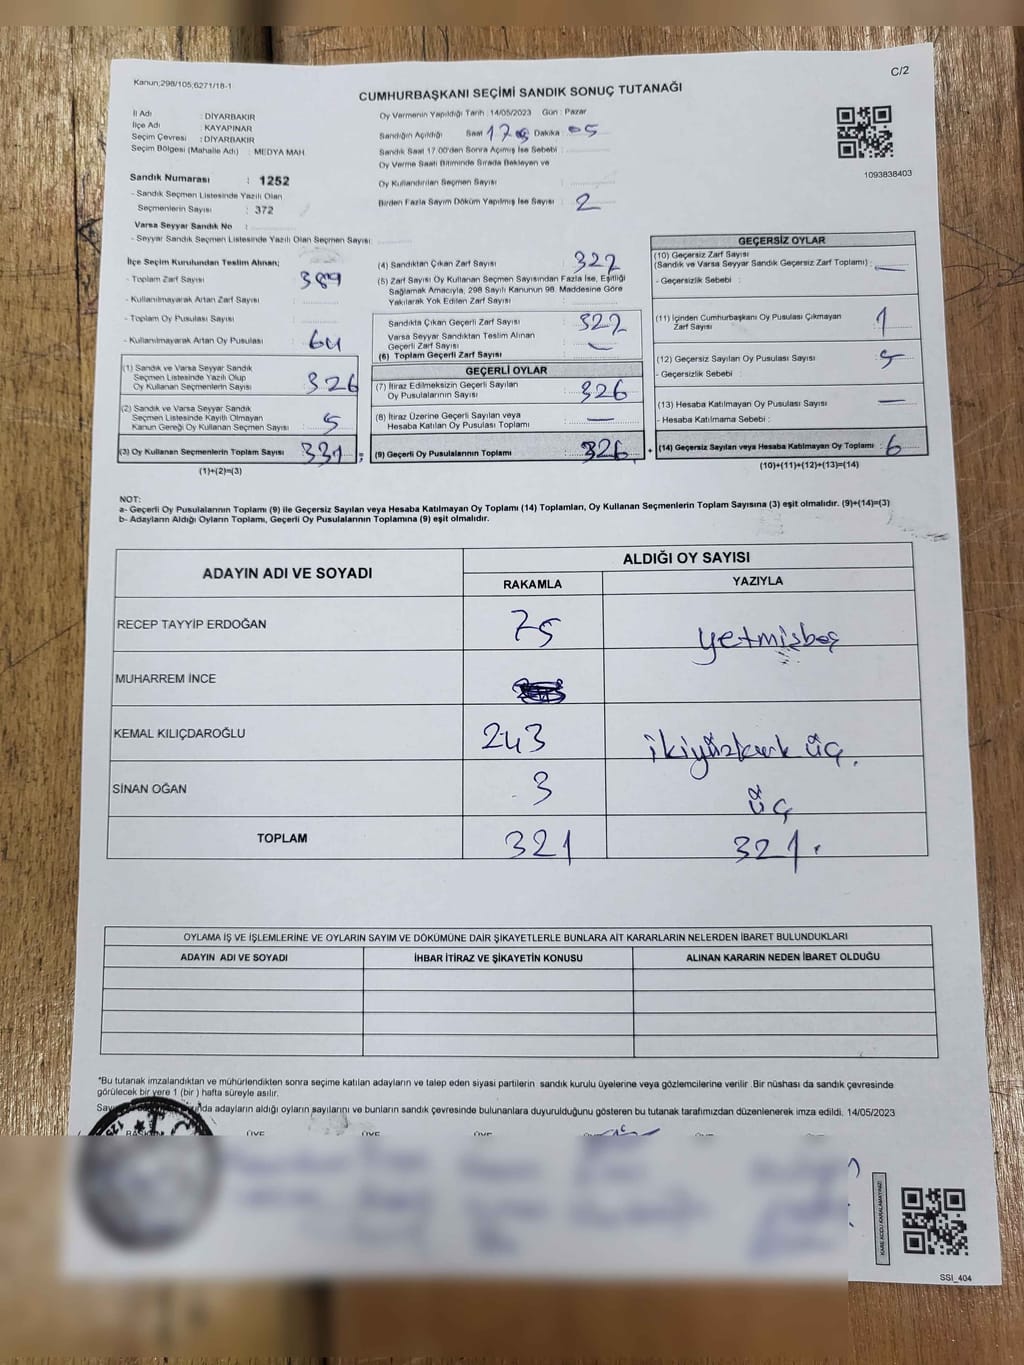 Kanun;298/105;6271/18-1
C/2
CUMHURBAŞKANI SEÇİMİ SANDIK SONUÇ TUTANAĞI
İl Adı : DİYARBAKIR
İlçe Adı : KAYAPINAR
Seçim Çevresi : DİYARBAKIR
Seçim Bölgesi (Mahalle Adı) : MEDYA MAH.
Sandık Numarası : 1252
- Sandık Seçmen Listesinde Yazılı Olan
Seçmenlerin Sayısı : 372
Varsa Seyyar Sandık No :
- Seyyar Sandık Seçmen Listesinde Yazılı Olan Seçmen Sayısı:
Oy Vermenin Yapıldığı Tarih :14/05/2023 Gün : Pazar
Sandığın Açıldığı Saat 17 Dakika 05
Sandık Saat 17.00'den Sonra Açılmış İse Sebebi :
Oy Verme Saati Bitiminde Sırada Bekleyen ve
Oy Kullandırılan Seçmen Sayısı :
Birden Fazla Sayım Döküm Yapılmış İse Sayısı : 2
1093838403
İlçe Seçim Kurulundan Teslim Alınan;
- Toplam Zarf Sayısı : 389
- Kullanılmayarak Artan Zarf Sayısı :
- Toplam Oy Pusulası Sayısı :
- Kullanılmayarak Artan Oy Pusulası : 64
(1) Sandık ve Varsa Seyyar Sandık
Seçmen Listesinde Yazılı Olup
Oy Kullanan Seçmenlerin Sayısı : 326
(2) Sandık ve Varsa Seyyar Sandık
Seçmen Listesinde Kayıtlı Olmayan
Kanun Gereği Oy Kullanan Seçmen Sayısı : 5
(3) Oy Kullanan Seçmenlerin Toplam Sayısı : 331 =
(1)+(2)=(3)
(4) Sandıktan Çıkan Zarf Sayısı : 322
(5) Zarf Sayısı Oy Kullanan Seçmen Sayısından Fazla İse, Eşitliği
Sağlamak Amacıyla, 298 Sayılı Kanunun 98. Maddesine Göre
Yakılarak Yok Edilen Zarf Sayısı :
Sandıkta Çıkan Geçerli Zarf Sayısı : 322
Varsa Seyyar Sandıktan Teslim Alınan
Geçerli Zarf Sayısı : —
(6) Toplam Geçerli Zarf Sayısı :
GEÇERLİ OYLAR
(7) İtiraz Edilmeksizin Geçerli Sayılan
Oy Pusulalarının Sayısı : 326
(8) İtiraz Üzerine Geçerli Sayılan veya
Hesaba Katılan Oy Pusulası Toplamı : —
(9) Geçerli Oy Pusulalarının Toplamı : 326 +
GEÇERSİZ OYLAR
(10) Geçersiz Zarf Sayısı
(Sandık ve Varsa Seyyar Sandık Geçersiz Zarf Toplamı) : —
- Geçersizlik Sebebi :
(11) İçinden Cumhurbaşkanı Oy Pusulası Çıkmayan
Zarf Sayısı : 1
(12) Geçersiz Sayılan Oy Pusulası Sayısı : 5
- Geçersizlik Sebebi :
(13) Hesaba Katılmayan Oy Pusulası Sayısı : —
- Hesaba Katılmama Sebebi :
(14) Geçersiz Sayılan veya Hesaba Katılmayan Oy Toplamı : 6
(10)+(11)+(12)+(13)=(14)
NOT:
a- Geçerli Oy Pusulalarının Toplamı (9) ile Geçersiz Sayılan veya Hesaba Katılmayan Oy Toplamı (14) Toplamları, Oy Kullanan Seçmenlerin Toplam Sayısına (3) eşit olmalıdır. (9)+(14)=(3)
b- Adayların Aldığı Oyların Toplamı, Geçerli Oy Pusulalarının Toplamına (9) eşit olmalıdır.
ADAYIN ADI VE SOYADI
ALDIĞI OY SAYISI
RAKAMLA YAZIYLA
RECEP TAYYİP ERDOĞAN 75 yetmişbeş
MUHARREM İNCE
KEMAL KILIÇDAROĞLU 243 ikiyüzkırk üç.
SİNAN OĞAN 3 üç
TOPLAM 321 321.
OYLAMA İŞ VE İŞLEMLERİNE VE OYLARIN SAYIM VE DÖKÜMÜNE DAİR ŞİKAYETLERLE BUNLARA AİT KARARLARIN NELERDEN İBARET BULUNDUKLARI
ADAYIN ADI VE SOYADI İHBAR İTİRAZ VE ŞİKAYETİN KONUSU ALINAN KARARIN NEDEN İBARET OLDUĞU
*Bu tutanak imzalandıktan ve mühürlendikten sonra seçime katılan adayların ve talep eden siyasi partilerin sandık kurulu üyelerine veya gözlemcilerine verilir .Bir nüshası da sandık çevresinde
görülecek bir yere 1 (bir ) hafta süreyle asılır.
adayların aldığı oyların sayılarını ve bunların sandık çevresinde bulunanlara duyurulduğunu gösteren bu tutanak tarafımızdan düzenlenerek imza edildi. 14/05/2023
BAŞKAN ÜYE ÜYE ÜYE
KARE KODU KARALAMAYINIZ!
SSI_404